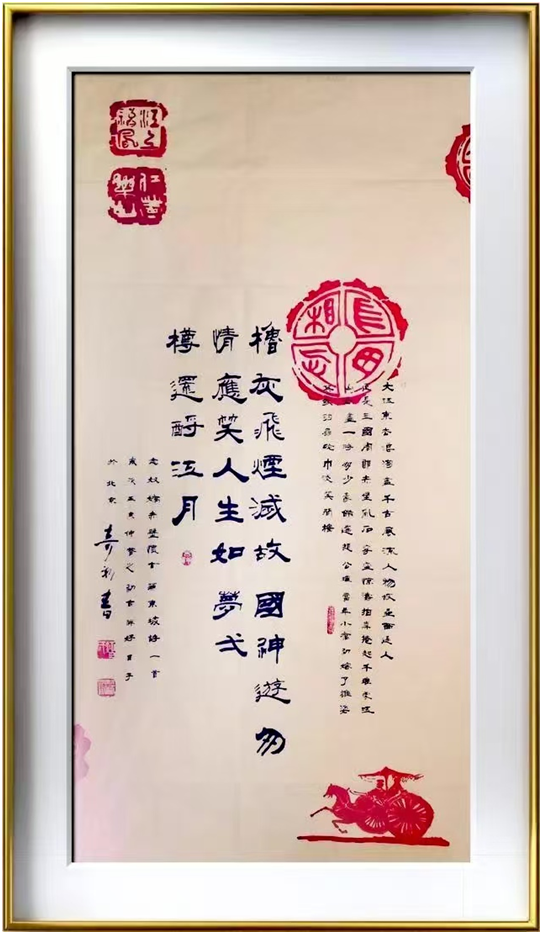 江上清風
仁者樂山
長毋相忘
大江東去浪淘盡千古風流人物故壘西邊人
道是三國周郎赤壁亂石穿空驚濤拍岸捲起千堆雪江
山如畫一時多少豪傑遙想公瑾當年小喬初嫁了雄姿
英發羽扇綸巾談笑間檣
櫓灰飛煙滅故國神遊多
情應笑人生如夢弌
樽還酹江月
念奴嬌赤壁懷古蘇東坡詩一首
歲次仲春之初書好日子
於北京書